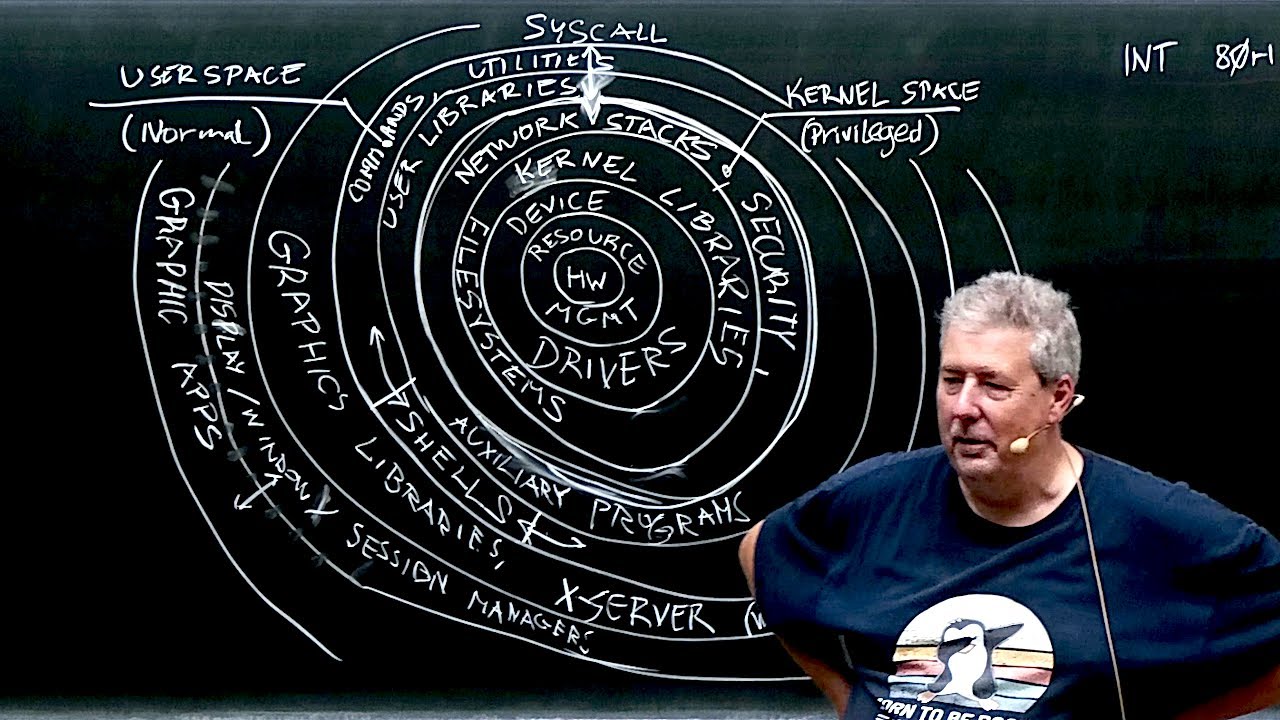 SYSCALL
INT 80H
USER SPACE
(Normal)
KERNEL SPACE
(Privileged)
COMMANDS, UTILITIES
USER LIBRARIES
NETWORK STACKS
SECURITY
KERNEL LIBRARIES
FILESYSTEMS
DEVICE
DRIVERS
RESOURCE
MGMT
HW
AUXILIARY PROGRAMS
SHELLS
GRAPHICS LIBRARIES, X-SERVER
DISPLAY/WINDOW/SESSION MANAGERS
GRAPHIC APPS
TO BE